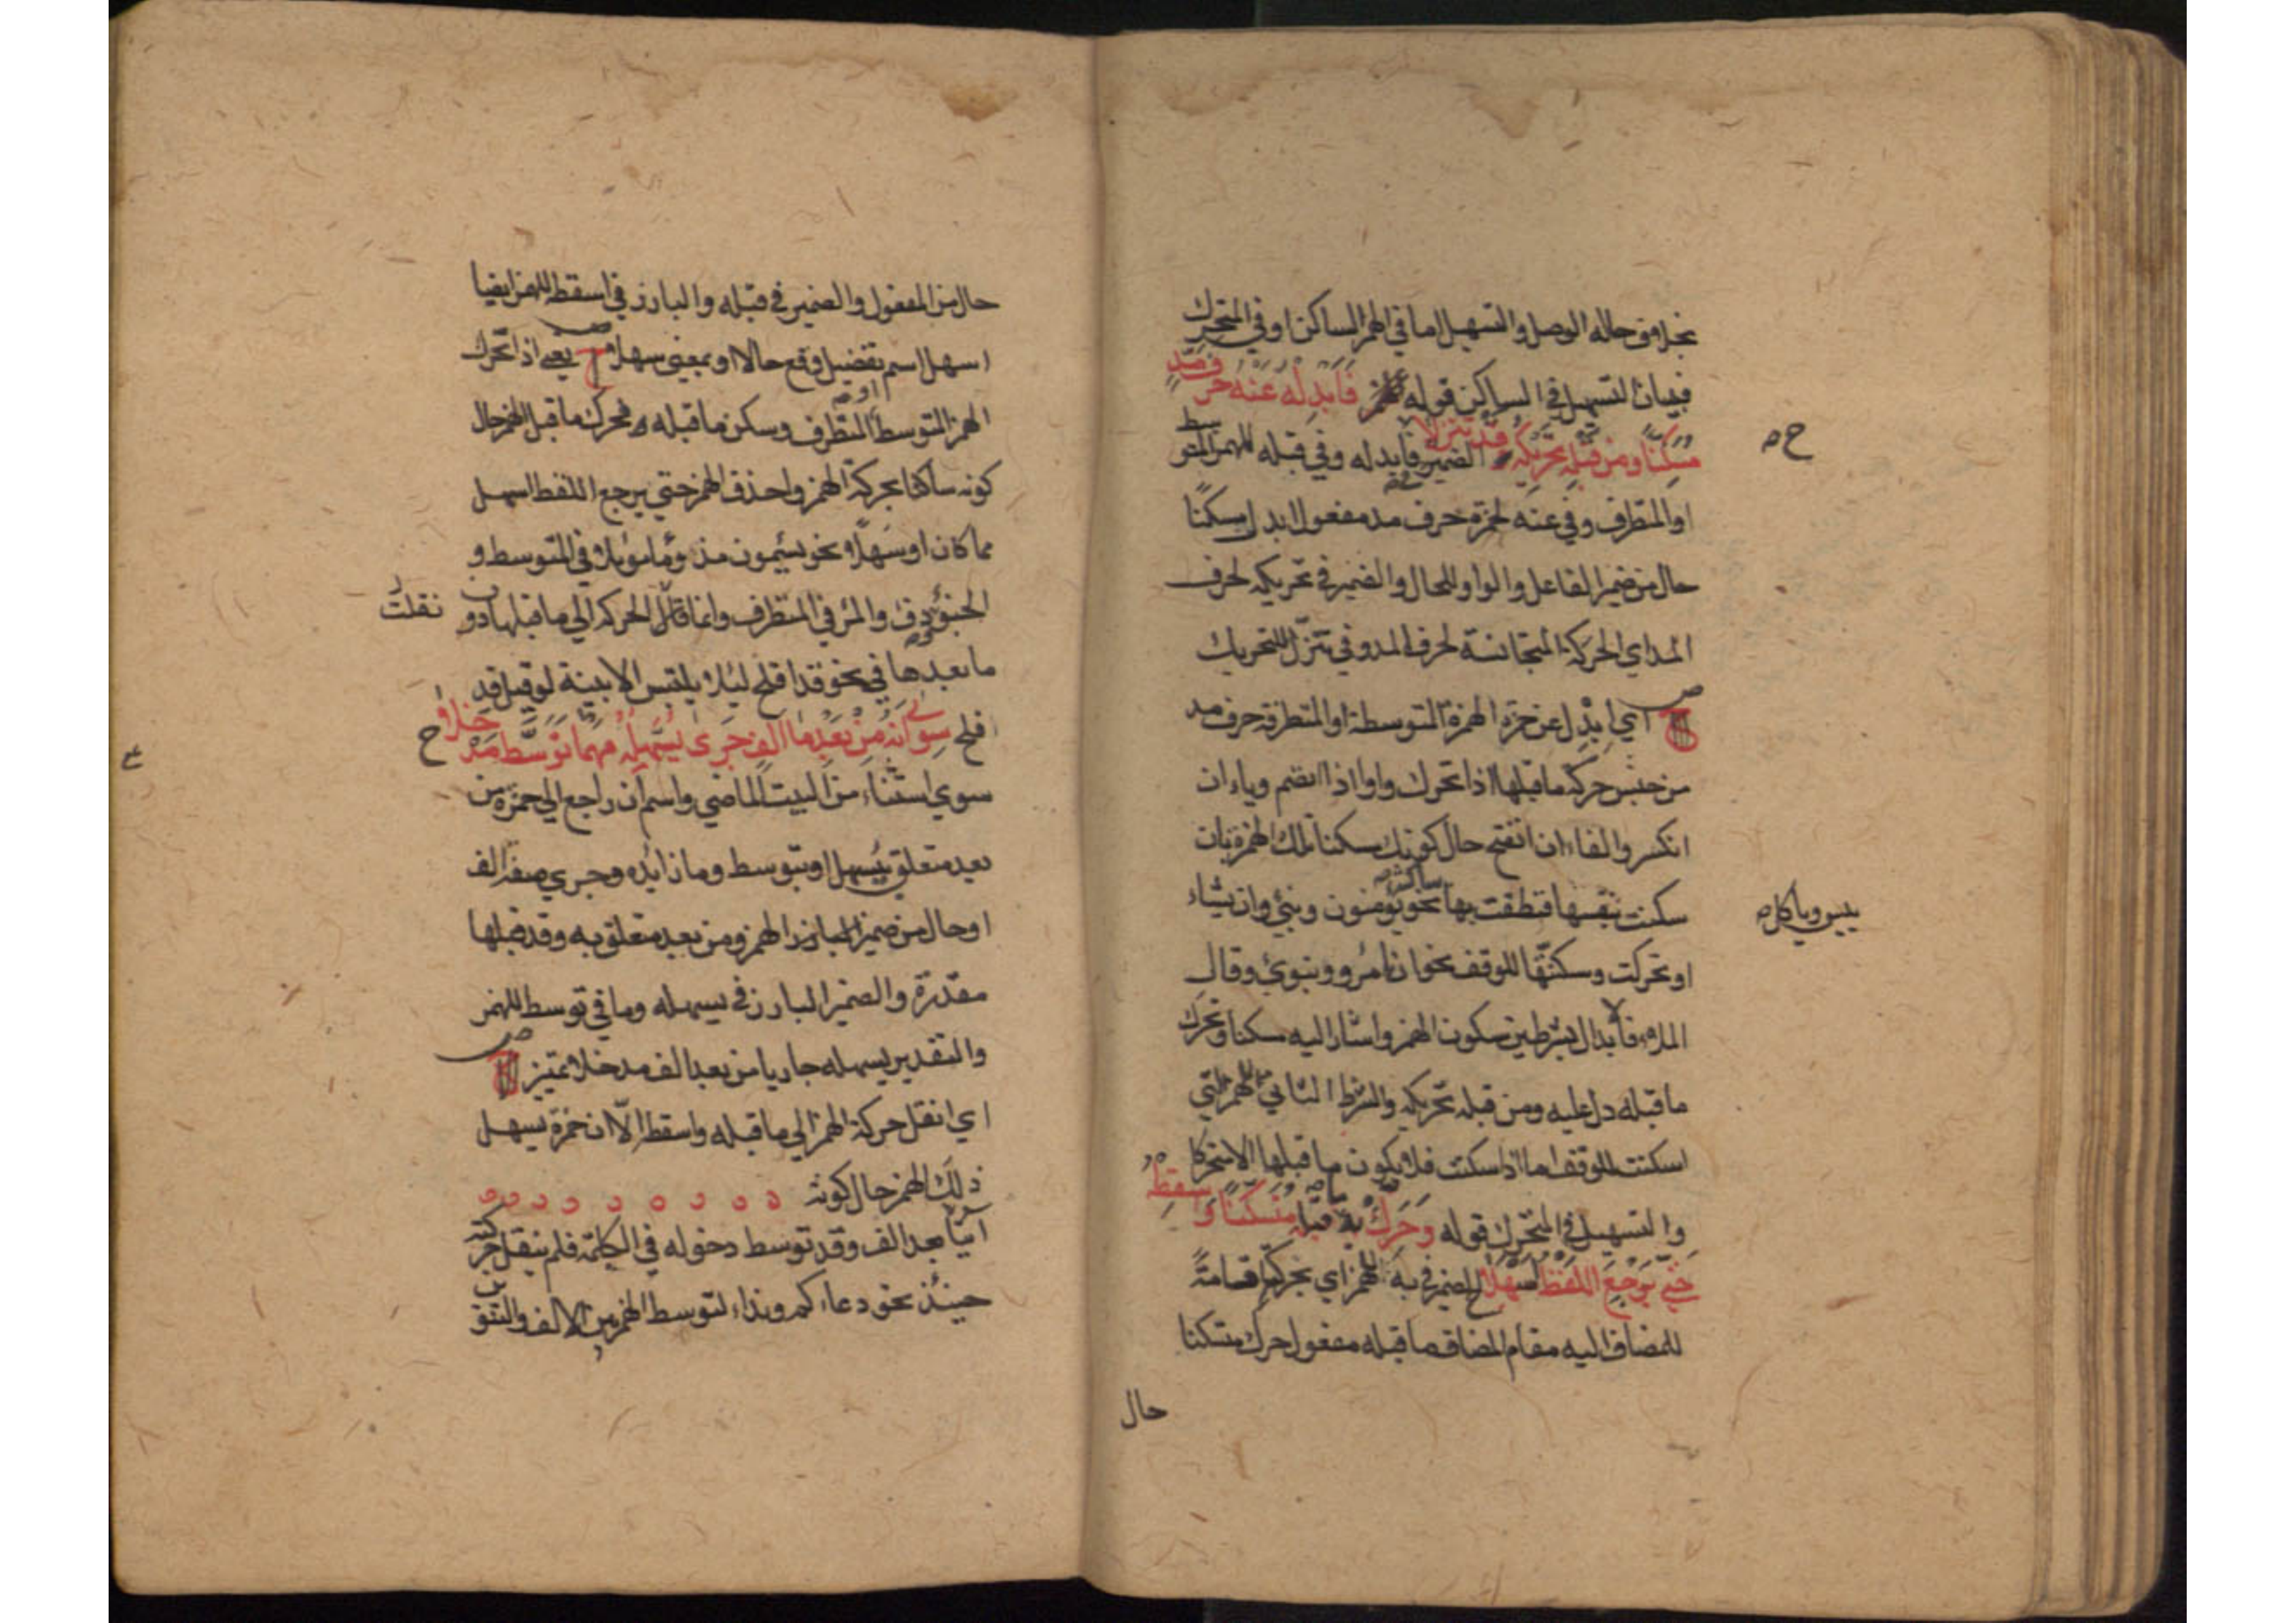 بخلاف حاله الوصل والتسهيل اما في الهمز الساكن او في المتحرك
فبيان التسهيل في الساكن قوله فَأَبْدِلْهُ عَنْهُ حَرْفَ مَدٍّ
مُسَكَّنًا وَمِنْ قَبْلِهِ تَحْرِيكُهُ قَدْ تَنَزَّلَا الضمير في فابدله وفي قبله للهمز المتوسط
او المتطرف وفي عنه لحمزة حرف مد مفعول ابدل مسكنًا
حال من ضمير الفاعل والواو للحال والضمير في تحريكه لحرف
المد اي الحركة المتجانسة لحرف المد وفي تنزّل للتحريك
ص ح اي ابدل عن حمزة الهمزة المتوسطة او المتطرفة حرف مد
من جنس حركة ما قبلها اذا تحرك واوا اذا انضم وياء ان
انكسر والفاء ان انفتح حال كونك مسكنا تلك الهمزة بان
سكنت بنفسها فنطقت بها ساكنة نحو يؤمنون ونبئ وان يشاء
او تحركت وسكنتها للوقف نحو ان امرؤ وينوئ وقال
الملاء فالابدال بشرطين سكون الهمز واشار اليه مسكنا وتحرك
ما قبله دل عليه ومن قبله تحريكه والشرط الثاني للهمز التي
اسكنت للوقف اما اذا سكنت فلا يكون ما قبلها الا متحركا
والتسهيل في المتحرك قوله وَحَرِّكْ بِهِ مَا قَبْلَهُ مُتَسَكِّنًا وَأَسْقِطْهُ
حَتَّى يَرْجِعَ اللَّفْظُ أَسْهَلَا ح الضمير في به للهمز اي بحركته اقامةً
للمضاف اليه مقام المضاف ما قبله مفعول حرك متسكنا
حال
ح صح
بئس وياكل صح
حال من المفعول والضمير في قبله والبارز في اسقطه للهمز ايضا
اسهل اسم تفضيل وقع حالا او بمعنى سهلا ص ح يعني اذا تحرك
الهمز المتوسط او المتطرف وسكن ما قبله فحرك ما قبل الهمز حال
كونه ساكنا بحركة الهمز واحذف الهمز حتى يرجع اللفظ اسهل
مما كان او سهلًا نحو يسئمون مذؤما موئلا في المتوسط و
الخبؤ دفؤ والمرء في المتطرف وانما نقلت الحركة الي ما قبلها دون
ما بعدها في نحو قد افلح ليلا يلتبس الابنية لو قيل قد
افلح سِوَى أَنَّهُ مِنْ بَعْدِ مَا أَلِفٍ جَرَى يُسَهِّلُهُ مَهْمَا تَوَسَّطَ مَدْخَلَا ح
سوي استثناء من البيت الماضي واسم ان راجع الي حمزة من
بعد متعلق بيسهل او بتوسط وما زايده وجري صفة الف
او حال من ضمير البارز الهمز ومن بعد متعلق به وقد قبلها
مقدّرة والضمير البارز في يسهله وما في توسط للهمز
والتقدير يسهله جاريا من بعد الف مدخلا تمييز ص ح
اي انقل حركة الهمز الي ما قبله واسقط الّا ان حمزة يسهل
ذلك الهمز حال كونه
آتيا بعد الف وقد توسط دخوله في الكلمة فلم ينقل حركته
حينئذ نحو دعاءكم ونداء لتوسط الهمز بين الالف والتنوين